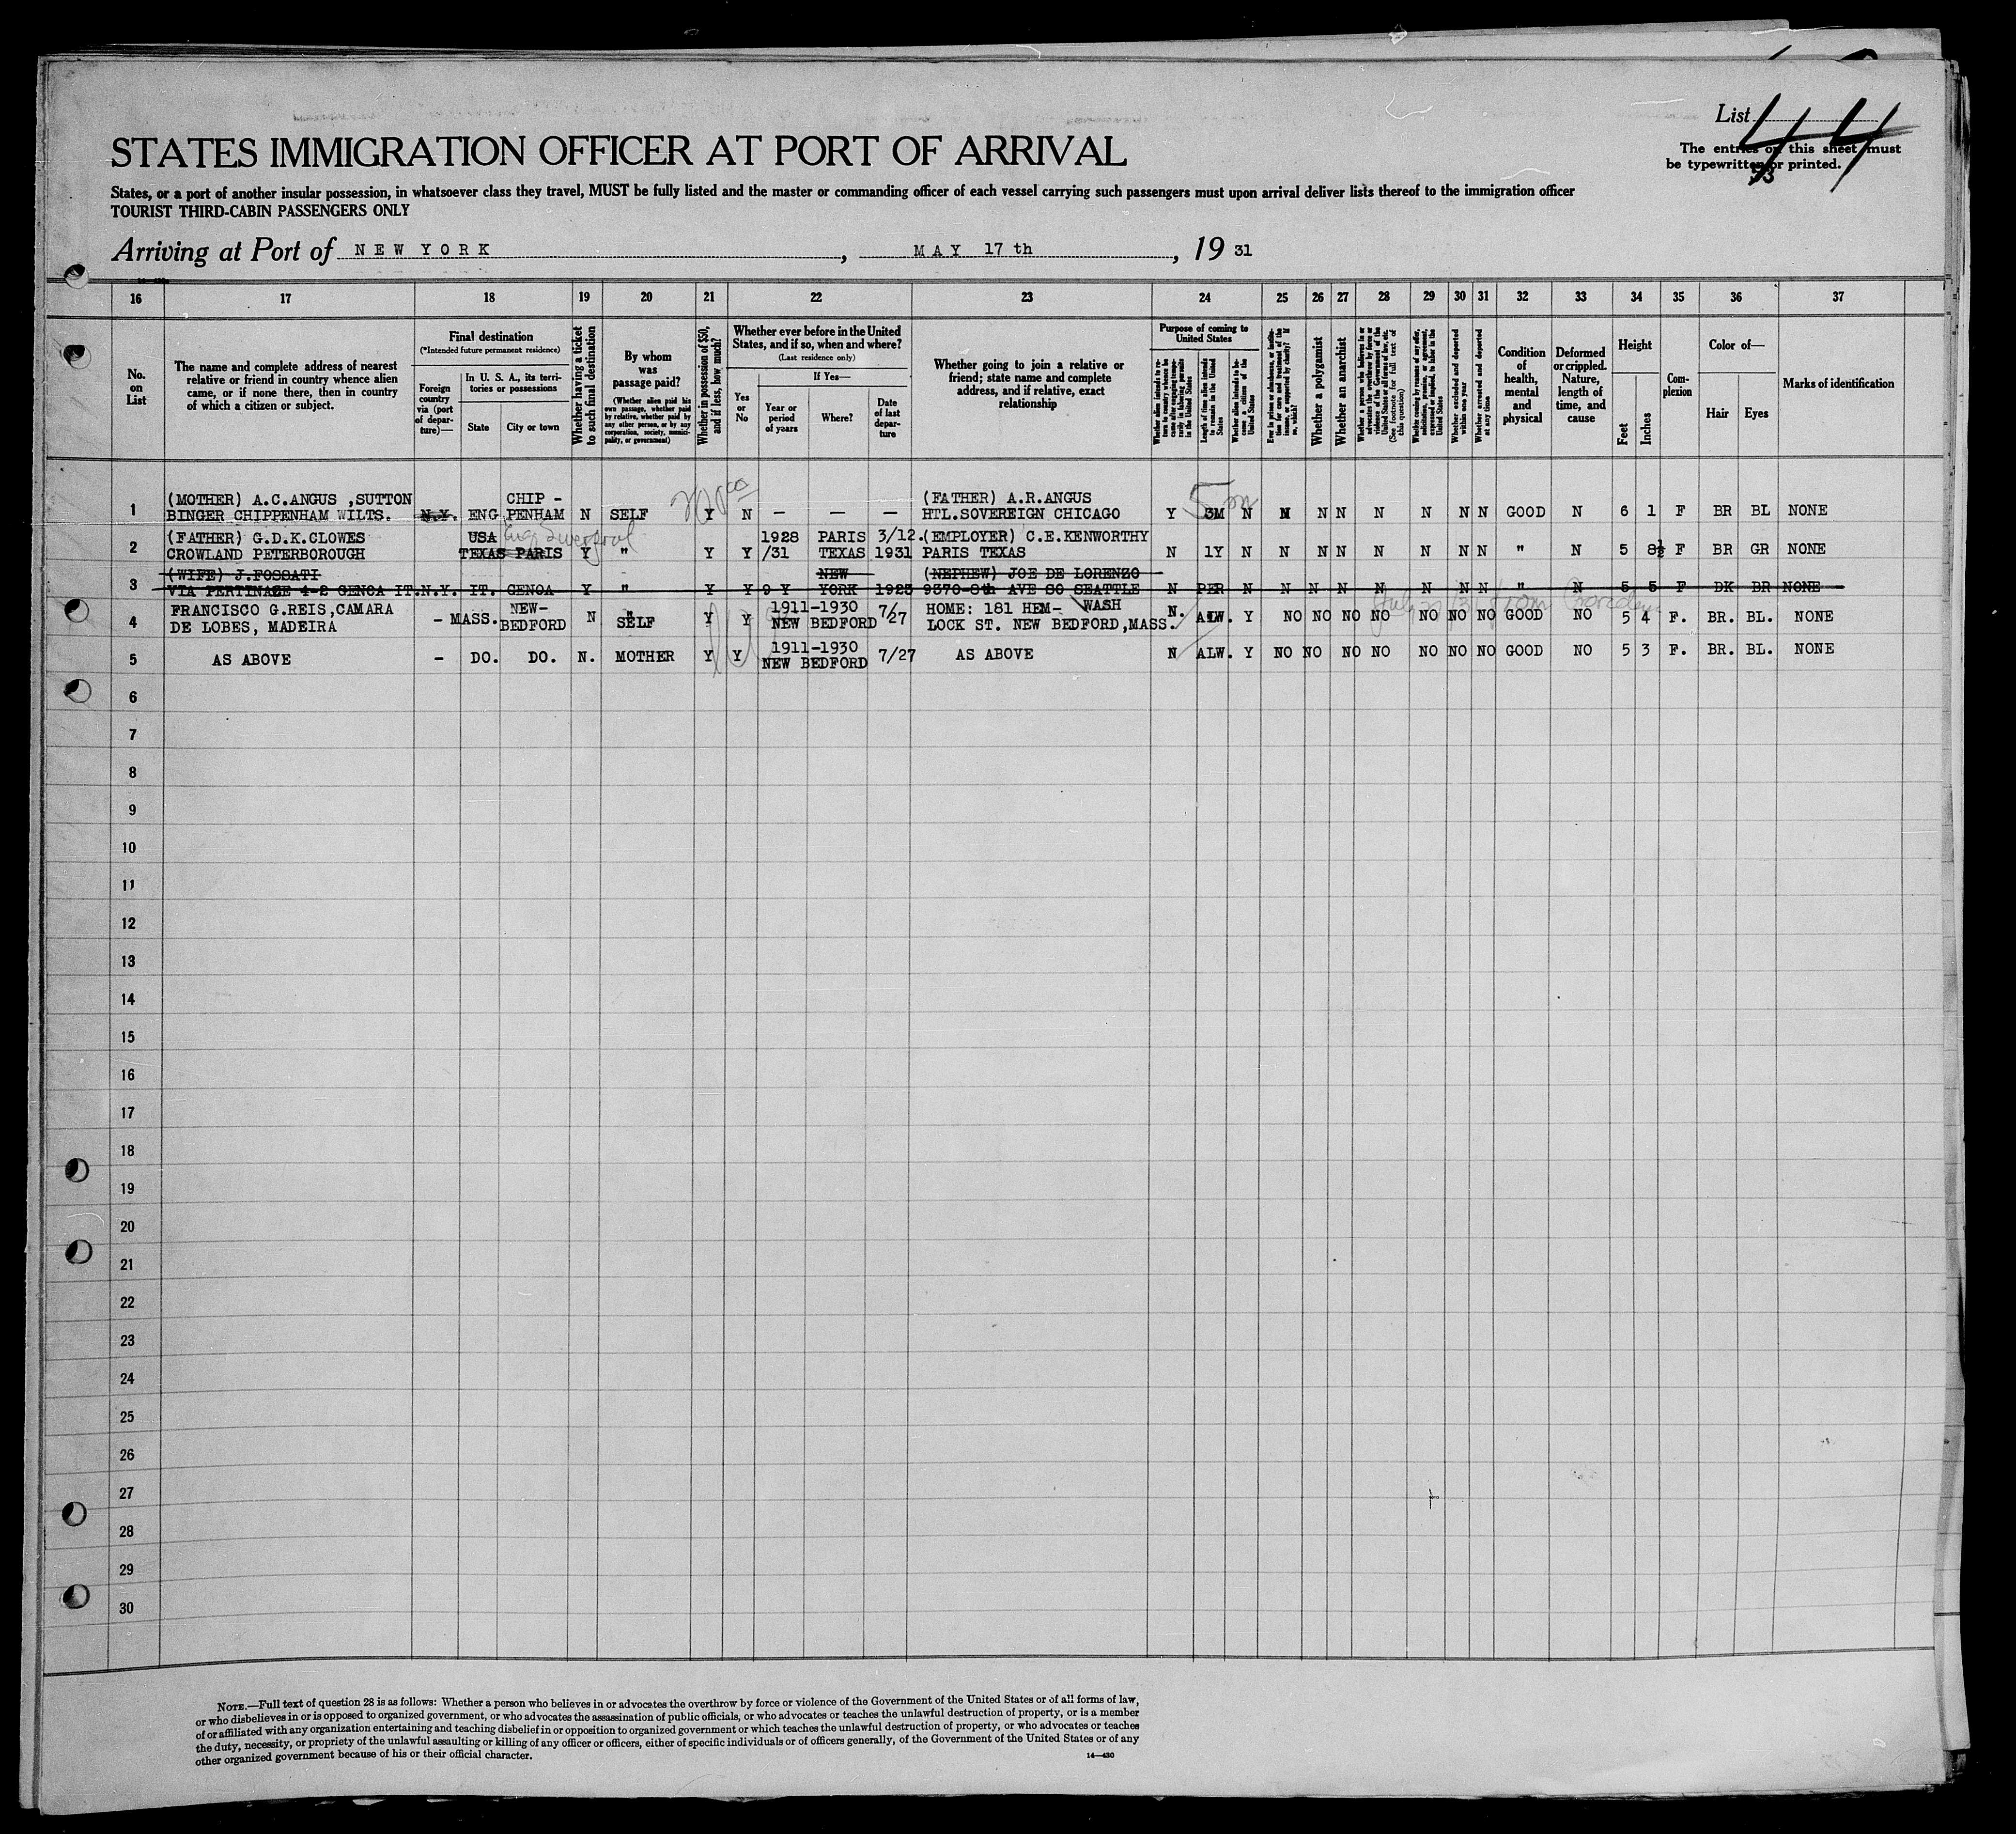 List 44
The entries on this sheet must
be typewritten or printed.
STATES IMMIGRATION OFFICER AT PORT OF ARRIVAL
States, or a port of another insular possession, in whatsoever class they travel, MUST be fully listed and the master or commanding officer of each vessel carrying such passengers must upon arrival deliver lists thereof to the immigration officer
TOURIST THIRD-CABIN PASSENGERS ONLY
Arriving at Port of NEW YORK, MAY 17th, 1931
16 17 18 19 20 21 22 23 24 25 26 27 28 29 30 31 32 33 34 35 36 37
No. on List
The name and complete address of nearest
relative or friend in country whence alien
came, or if none there, then in country
of which a citizen or subject.
Final destination
(*Intended future permanent residence)
Foreign country via (port of departure)—
In U. S. A., its territories or possessions
State
City or town
Whether having a ticket to such final destination
By whom was passage paid?
(Whether alien paid his own passage, whether paid by relative, whether paid by any other person, or by any corporation, society, municipality, or government)
Whether in possession of $50, and if less, how much?
Whether ever before in the United
States, and if so, when and where?
(Last residence only)
Yes or No
If Yes—
Year or period of years
Where?
Date of last departure
Whether going to join a relative or
friend; state name and complete
address, and if relative, exact
relationship
Purpose of coming to United States
Whether alien intends to return to country whence he came after engaging temporarily in laboring pursuits in the United States
Length of time alien intends to remain in the United States
Whether alien intends to become a citizen of the United States
Ever in prison or almshouse, or institution for care and treatment of the insane, or supported by charity? If so, which?
Whether a polygamist
Whether an anarchist
Whether a person who believes in or advocates the overthrow by force or violence of the Government of the United States or all forms of law, etc. (See footnote for full text of this question)
Whether coming by reason of any offer, solicitation, promise, or agreement, expressed or implied, to labor in the United States
Whether excluded and deported within one year
Whether arrested and deported at any time
Condition of health, mental and physical
Deformed or crippled. Nature, length of time, and cause
Height
Feet
Inches
Complexion
Color of—
Hair
Eyes
Marks of identification
(MOTHER) A.C.ANGUS ,SUTTON CHIP - (FATHER) A.R.ANGUS
1 BINGER CHIPPENHAM WILTS. N.Y. ENG PENHAM N SELF Y N — — — HTL.SOVEREIGN CHICAGO Y 3M N N N N N N N N GOOD N 6 1 F BR BL NONE
5m
(FATHER) G.D.K.CLOWES USA Eng Liverpool 1928 PARIS 3/12. (EMPLOYER) C.E.KENWORTHY
2 CROWLAND PETERBOROUGH TEXAS PARIS Y " Y Y /31 TEXAS 1931 PARIS TEXAS N 1Y N N N N N N N N " N 5 8½ F BR GR NONE
(WIFE) J.FOSSATI NEW (NEPHEW) JOE DE LORENZO
3 VIA PERTINACE 4-2 GENOA IT. N.Y. IT. GENOA Y " Y Y 9 Y YORK 1923 9370-8th AVE SO SEATTLE N PER N N N N N N N N " N 5 5 F DK BR NONE
WASH
FRANCISCO G.REIS,CAMARA NEW- 1911-1930 7/27 HOME: 181 HEM-
4 DE LOBES, MADEIRA - MASS. BEDFORD N SELF Y Y NEW BEDFORD LOCK ST. NEW BEDFORD,MASS. N. ALW. Y NO NO NO NO NO NO NO GOOD NO 5 4 F. BR. BL. NONE
1911-1930
5 AS ABOVE - DO. DO. N. MOTHER Y Y NEW BEDFORD 7/27 AS ABOVE N ALW. Y NO NO NO NO NO NO NO GOOD NO 5 3 F. BR. BL. NONE
6
7
8
9
10
11
12
13
14
15
16
17
18
19
20
21
22
23
24
25
26
27
28
29
30
NOTE.—Full text of question 28 is as follows: Whether a person who believes in or advocates the overthrow by force or violence of the Government of the United States or of all forms of law,
or who disbelieves in or is opposed to organized government, or who advocates the assassination of public officials, or who advocates or teaches the unlawful destruction of property, or is a member
of or affiliated with any organization entertaining and teaching disbelief in or opposition to organized government or which teaches the unlawful destruction of property, or who advocates or teaches
the duty, necessity, or propriety of the unlawful assaulting or killing of any officer or officers, either of specific individuals or of officers generally, of the Government of the United States or of any
other organized government because of his or their official character.
14—430